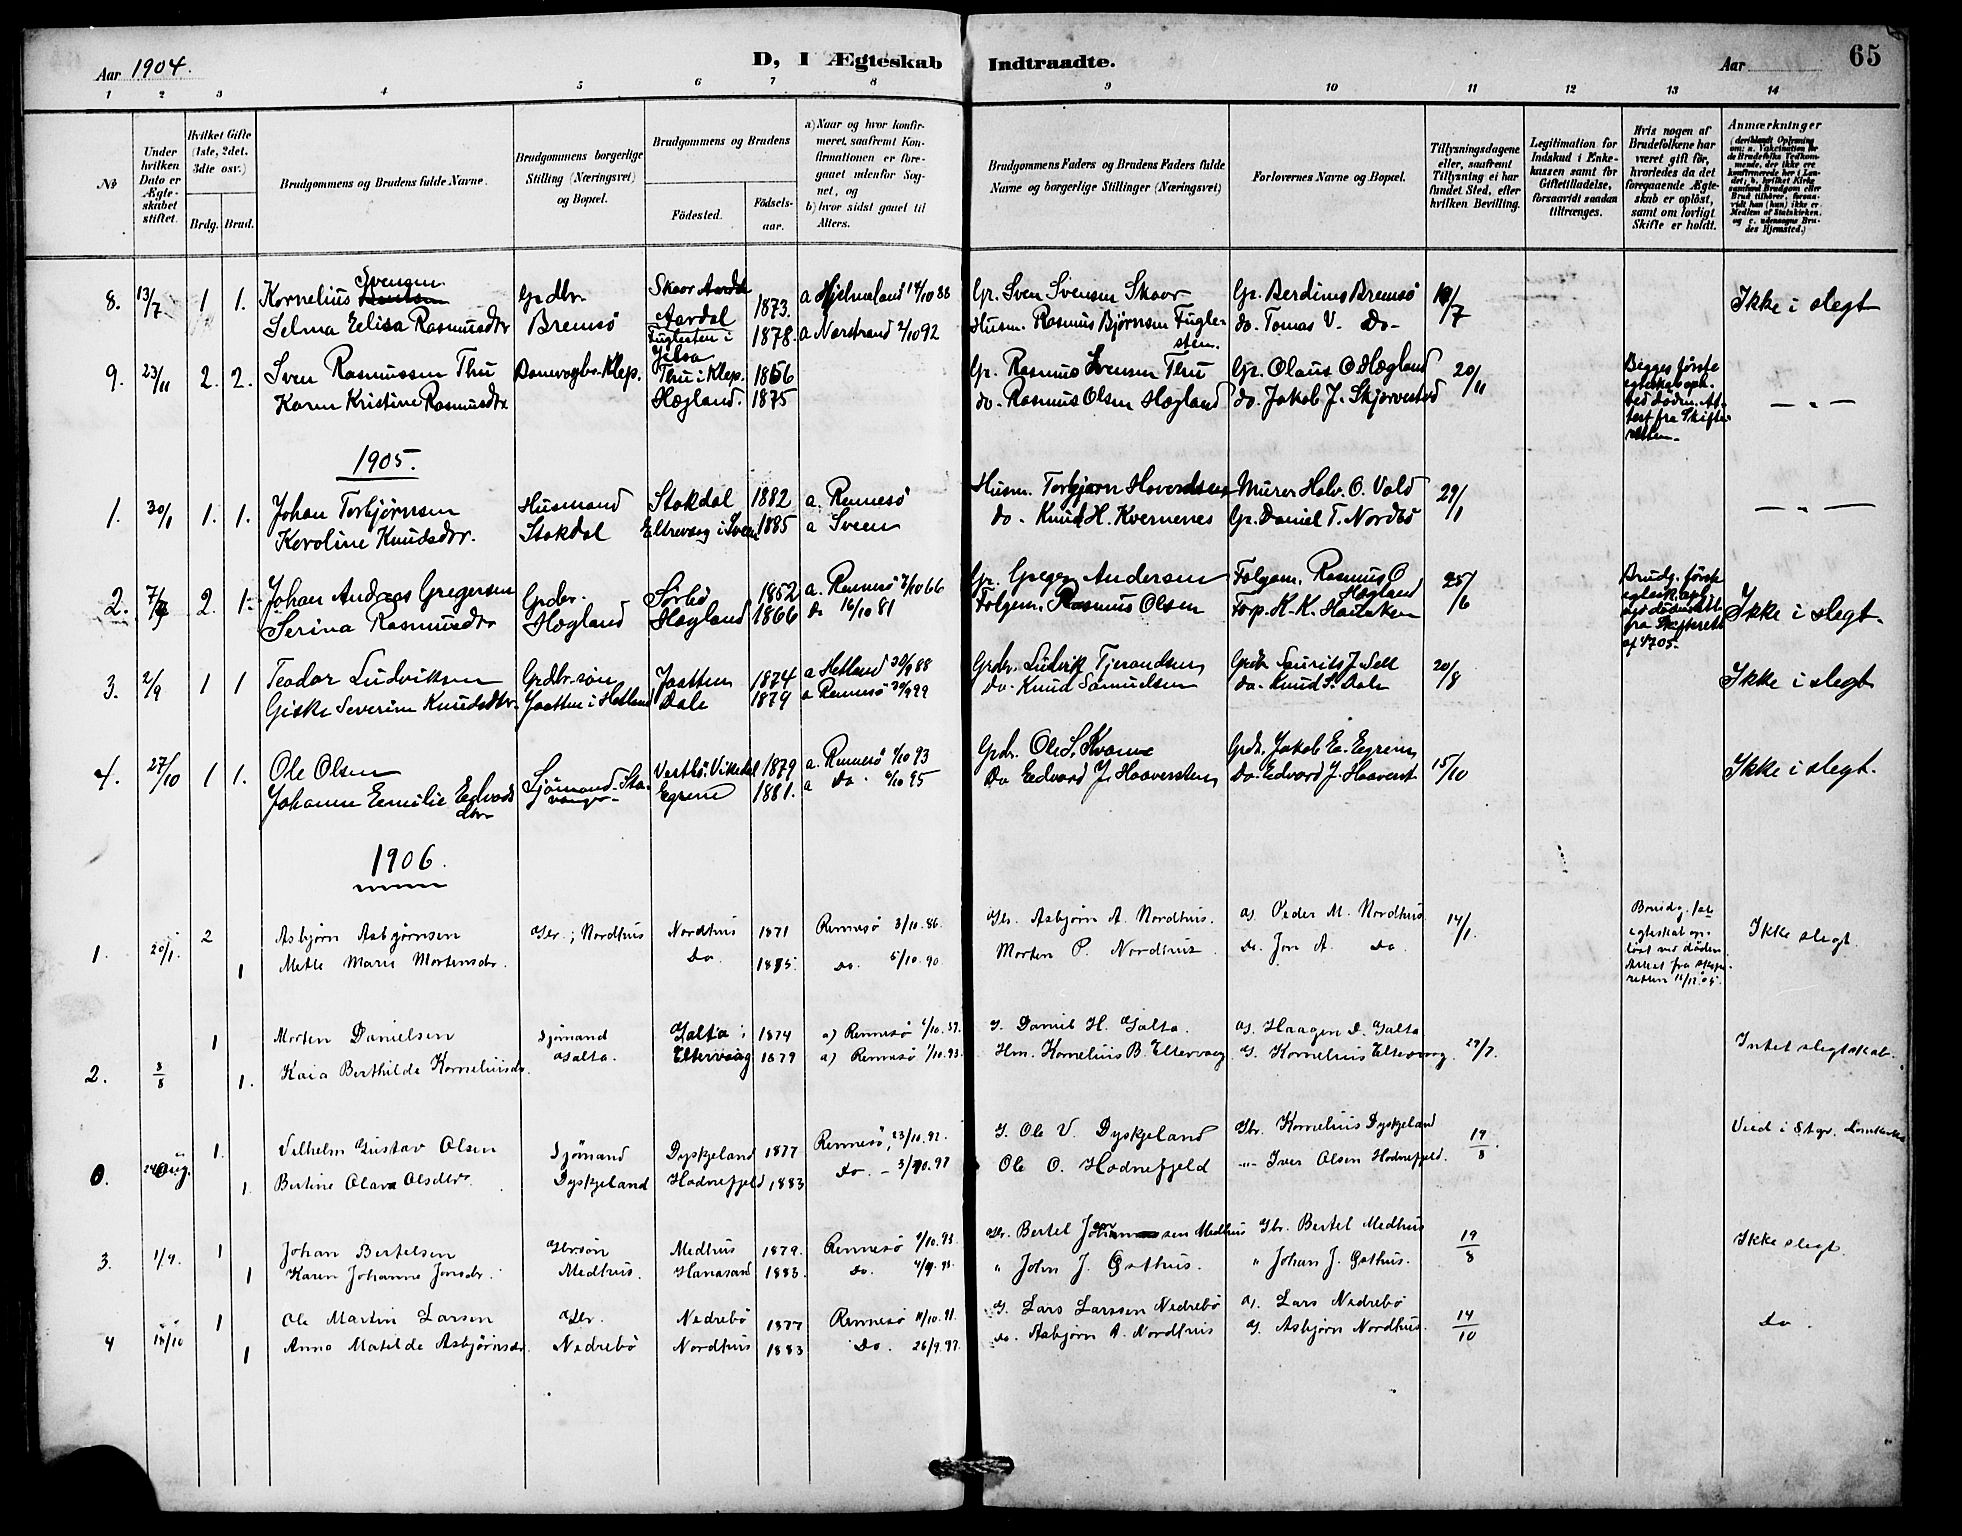 Aar 1904.
D, I Ægteskab Indtraadte.
Aar
65
1 2 3 4 5 6 7 8 9 10 11 12 13 14
No
Under hvilken Dato er Ægteskabet stiftet.
Hvilket Gifte (1ste, 2det, 3die osv.)
Brdg. Brud.
Brudgommens og Brudens fulde Navne.
Brudgommens borgerlige Stilling (Næringsvei) og Bopæl.
Brudgommens og Brudens
Fødested.
Fødselsaar.
a) Naar og hvor konfirmeret, saafremt Konfirmationen er foregaaet udenfor Sognet, og
b) hvor sidst gaaet til Alters.
Brudgommens Faders og Brudens Faders fulde Navne og borgerlige Stillinger (Næringsvei)
Forlovernes Navne og Bopæl.
Tillysningsdagene eller, saafremt Tillysning ei har fundet Sted, efter hvilken Bevilling.
Legitimation for Indskud i Enkekassen samt for Giftetilladelse, forsaavidt saadan tiltrænges.
Hvis nogen af Brudefolkene har været gift før, hvorledes da det foregaaende Ægteskab er opløst, samt om lovligt Skifte er holdt.
Anmærkninger
8. 13/7 1 1. Kornelius Svensen Gr.dbr. Skaar Aardal 1873. a Hjelmeland 14/10 88 Gr. Sven Svensen Skaar Gr. Berdines Bremsö /7 Ikke i slegt
Selma Elisa Rasmusdtr Bremsö Fuglesten i Jelsa 1878. a Narstrand 2/10 92 Husm. Rasmus Björnsen Fuglesten. do. Tomas V. do-
9. 23/11 2. 2. Sven Rasmussen Thu Klep. Thu i Klep. 1856 Gr. Rasmus Svensen Thu Gr. Olaus O Hægland 20/11 Begges første egteskab opl. ved döden. Attest fra Skifteretten. — " —
Karen Kristine Rasmusdtr Hægland. 1875 do. Rasmus Olsen Hægland do. Jakob J. Skjørvestad
1905.
1. 30/1 1. 1. Johan Torbjørnsen Husmand Stokdal 1882 a. Rennesö Husm. Torbjørn Hoverdsen Murer Halv. O. Vold 29/1 — " —
Karoline Knudsdtr. Stokdal Eltrevaag i Sveen 1885 a Sveen do. Knud H. Kvernenes Gr. Daniel T. Nordbö
2. 7/7 2. 1. Johan Andreas Gregersen Grdbr. Sørbö 1852 a. Rennesö 7/10 66 Gr. Greger Andersen Folgem. Rasmus O Hægland 25/6 Ikke i slegt.
Serina Rasmusdtr Hægland Hægland 1866 do 16/10 81 Folgem. Rasmus Olsen Forp. K. K.
3. 2/9 1 1 Teodor Ludviksen Grdbr.søn Jaatten 1874 a Hetland 30/9 88 Grdbr. Ludvik Tjerandsen Grdbr Laurits J. Sele 20/8 Ikke i slegt
Giske Severine Knudsdtr. Jaatten i Hetland Dale 1879 a Rennesö do. Knud Samuelsen do. Knud S. Dale
4. 27/10 1 1. Ole Olsen Sjømand Stavanger Vestbö. Vikedal 1879 a. Rennesö 1/10 93 Grdr. Ole S. Kvame Grdr. Jakob E. Egrem 15/10 Ikke i slegt.
Johanne Emilie Edvardsdtr Egrene 1881. a do 6/10 95 do Edvard J. Haaversten do. Edvard J. Haaverst
1906.
1. 20/1. 2 Asbjørn Asbjørnsen Gbr. i Nordhus Nordhus 1871 Rennesö 3/10. 86. Gbr. Asbjørn A. Nordhus. G. Peder M. Nordhus. 14/1. Brudg. 1ste egteskab opløst ved döden Attest fra skifteretten 11/12 05. Ikke slegt.
1 Mette Marie Mortensdtr. Do. 1875. Do. 5/10. 90. Morten P. Nordhus. Do. Jon A. Do.
2. 3/8 1 Morten Danielsen Sjømand Galta i 1874 a) Rennesö G. Daniel H. Galta. G. Haagen D. Galta 29/7. Intet slegtskab.
1. Kaia Berthilde Korneliusdtr. Galta. Eltervaag 1879 a) Rennesö 1/10. 93. Hm. Kornelius B. Eltervaag G. Kornelius Eltervaag
0. 24 Aug. 1. Vilhelm Gustav Olsen Sjømand Dyskjeland 1877 Rennesö, 23/10. 92. G. Ole V. Dyskjeland Gbr. Kornelius Dyskjeland 19/8. Viet i Stgr. Domkirke
1. Bertine Olava Olsdtr. Dyskjeland Hodnefjeld 1883 Do. - 3/10. 97 Ole O. Hodnefjeld " Iver Olsen Hodnefjeld.
3. 1/9. 1 Johan Bertelsen Gbrsön Medhus 1879. Rennesö 1/10. 93. Gbr. Bertel Jonsen Medhus Gbr. Bertel Medhus 19/8 Ikke slegt.
1 Karen Johanne Jonsdtr. Medhus. Hanasand 1883. Do. " John J. Gsthus. " Johan J. Gsthus.
4 18/10 1 Ole Martin Larsen Gbr. Nedrebö 1877 Rennesö 11/10. 91. G. Lars Larssen Nedrebö G. Lars Nedrebö 14/10 Do.
1 Anna Matilde Asbjørnsdtr. Nedrebö Nordhus 1883 Do. 26/9. 97. Do. Asbjørn A. Nordhus G. Asbjørn Nordhus.